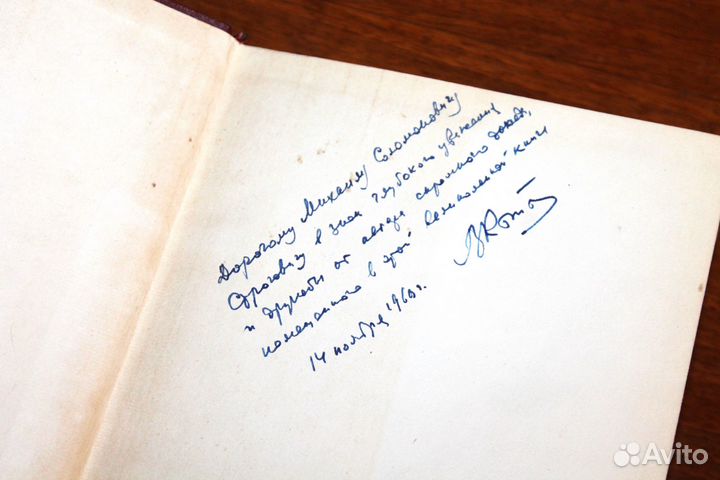 Дорогому Михаилу Соломоновичу
Строговичу в знак глубокого уважения
и дружбы от автора скромного доклада,
помещенного в этой великолепной книге
14 ноября 1960 г.
Avito